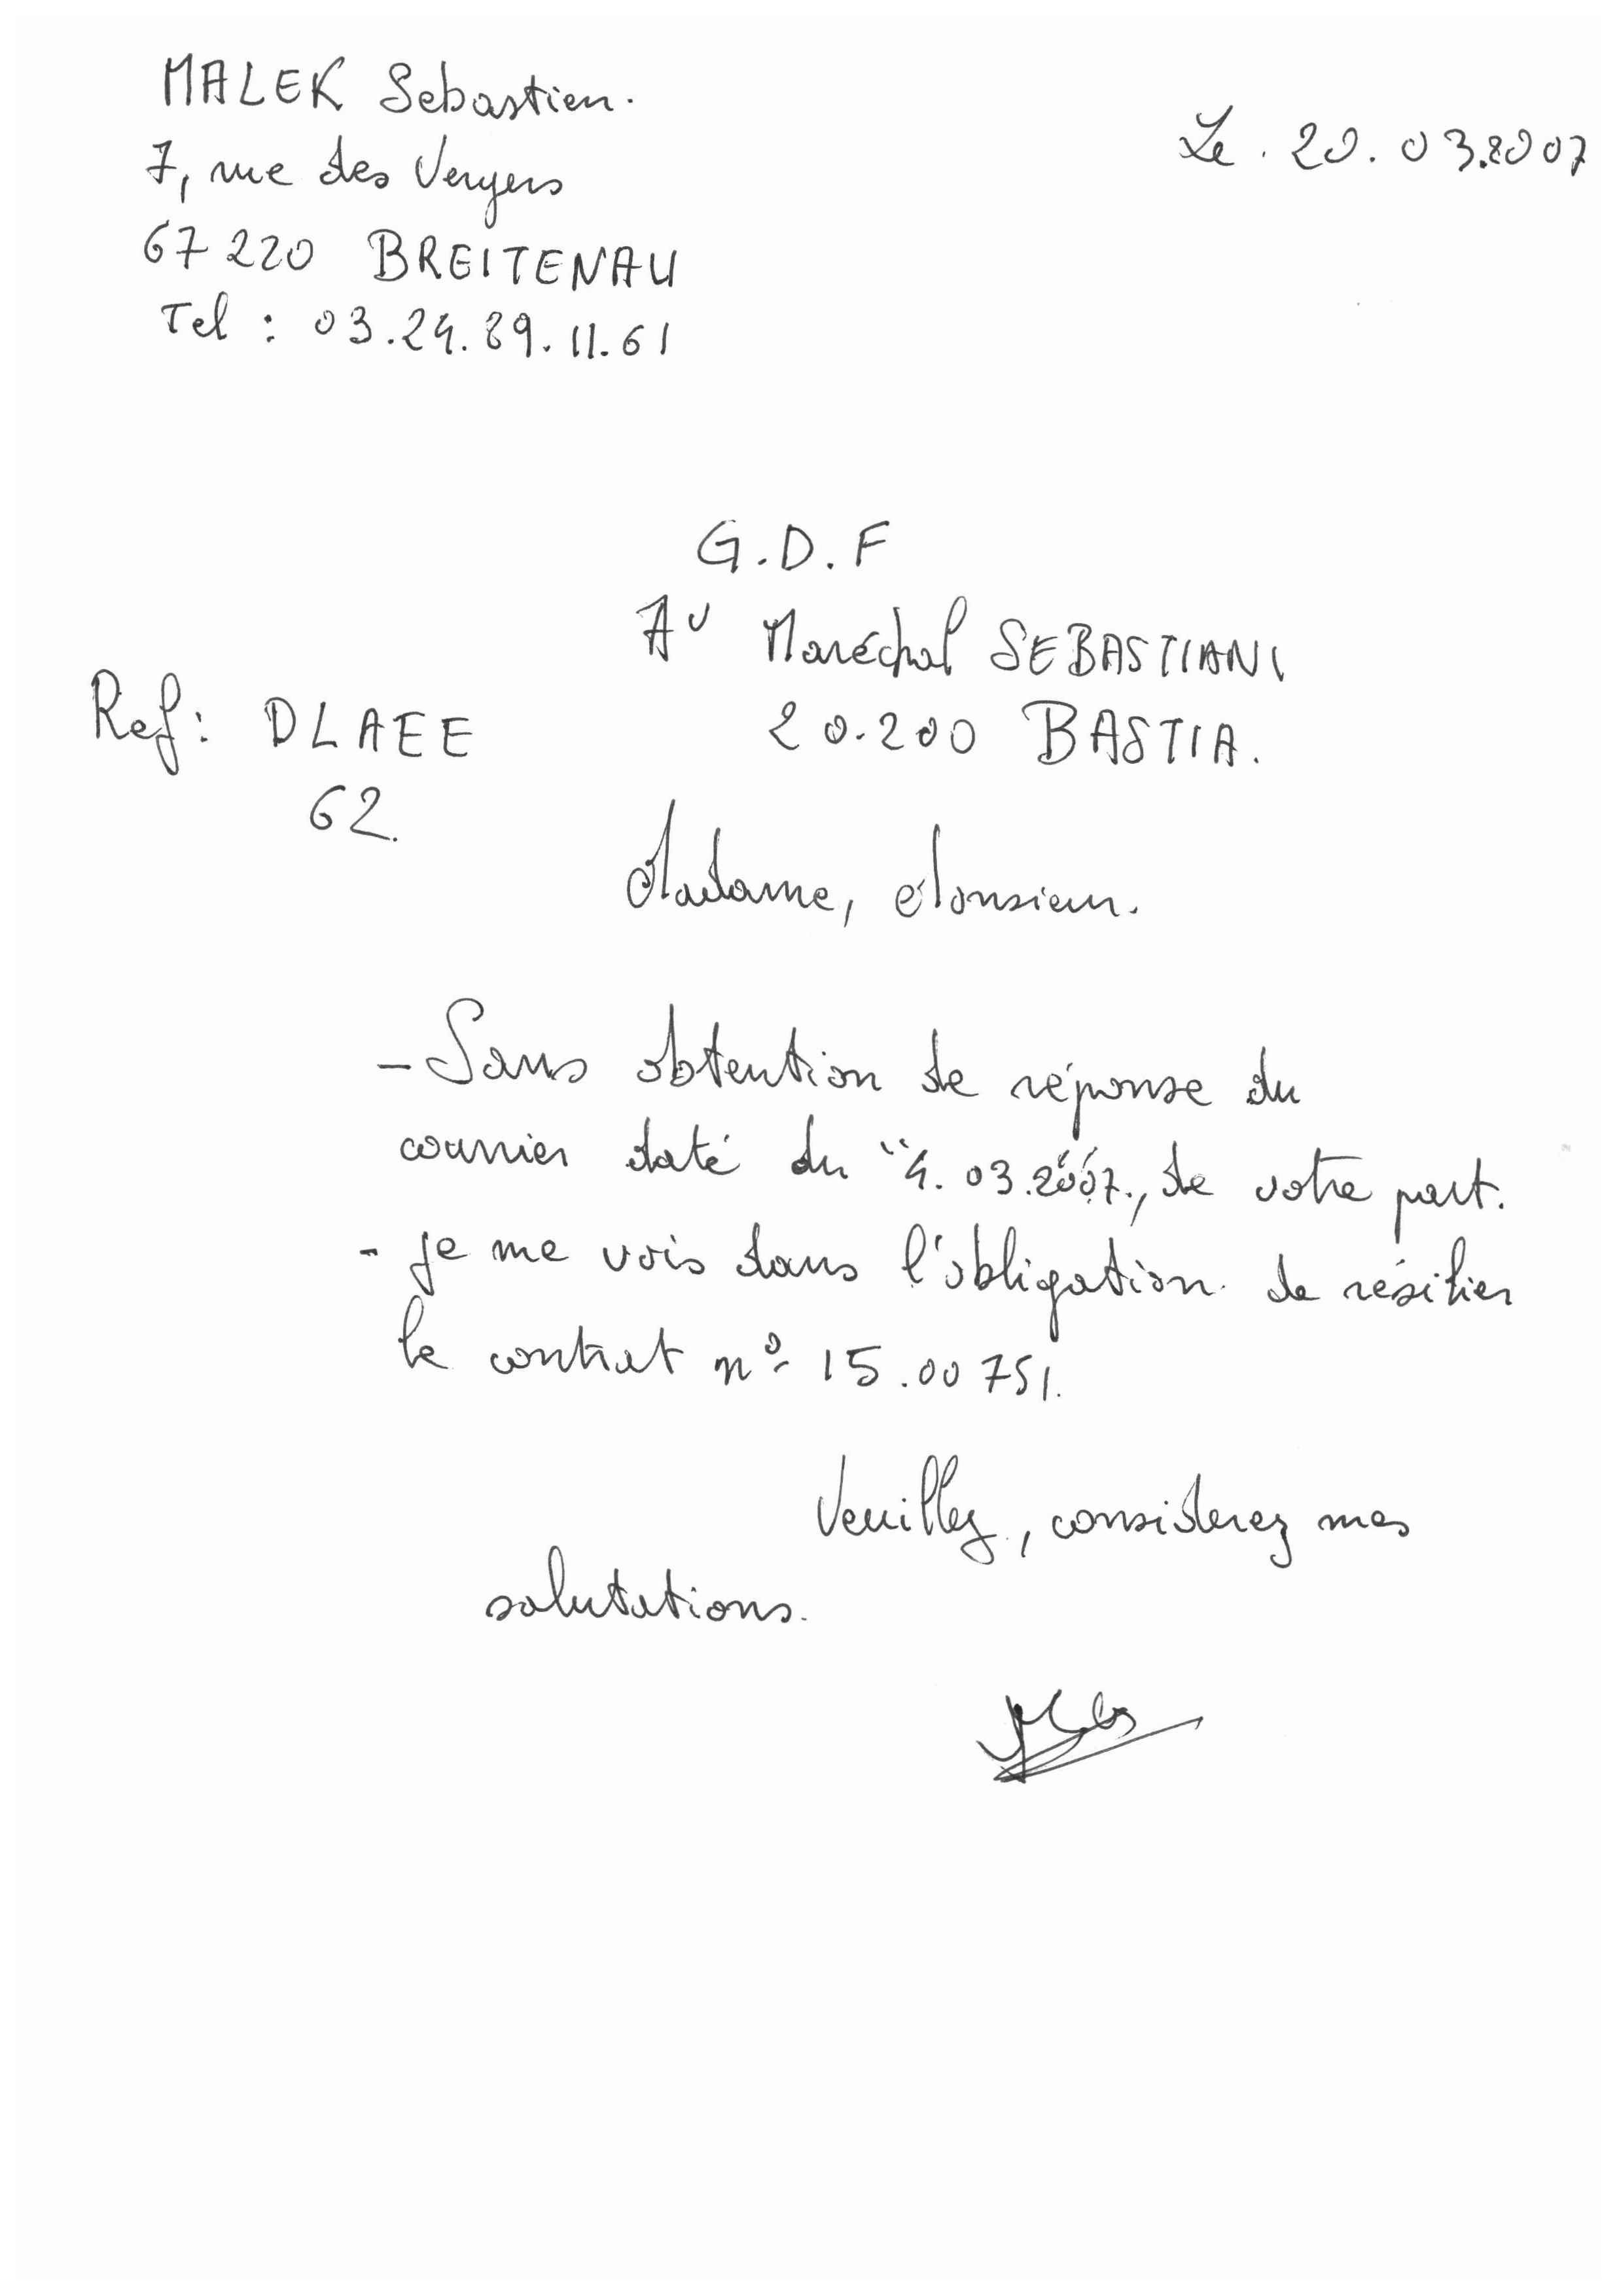 MALEK Sebastien.
Le. 20. 03.2007
7, rue des Vergers
67220 BREITENAU
Tel : 03.24.89.11.61
G.D.F
Av Maréchal SEBASTIANI
Ref: DLAEE
20.200 BASTIA.
62.
Madame, Monsieur.
- Sans obtention de réponse du
courrier daté du "4. 03.2007., de votre part.
- je me vois dans l'obligation de résilier
le contrat n° 15.00751.
Veuillez, considerez mes
salutations.